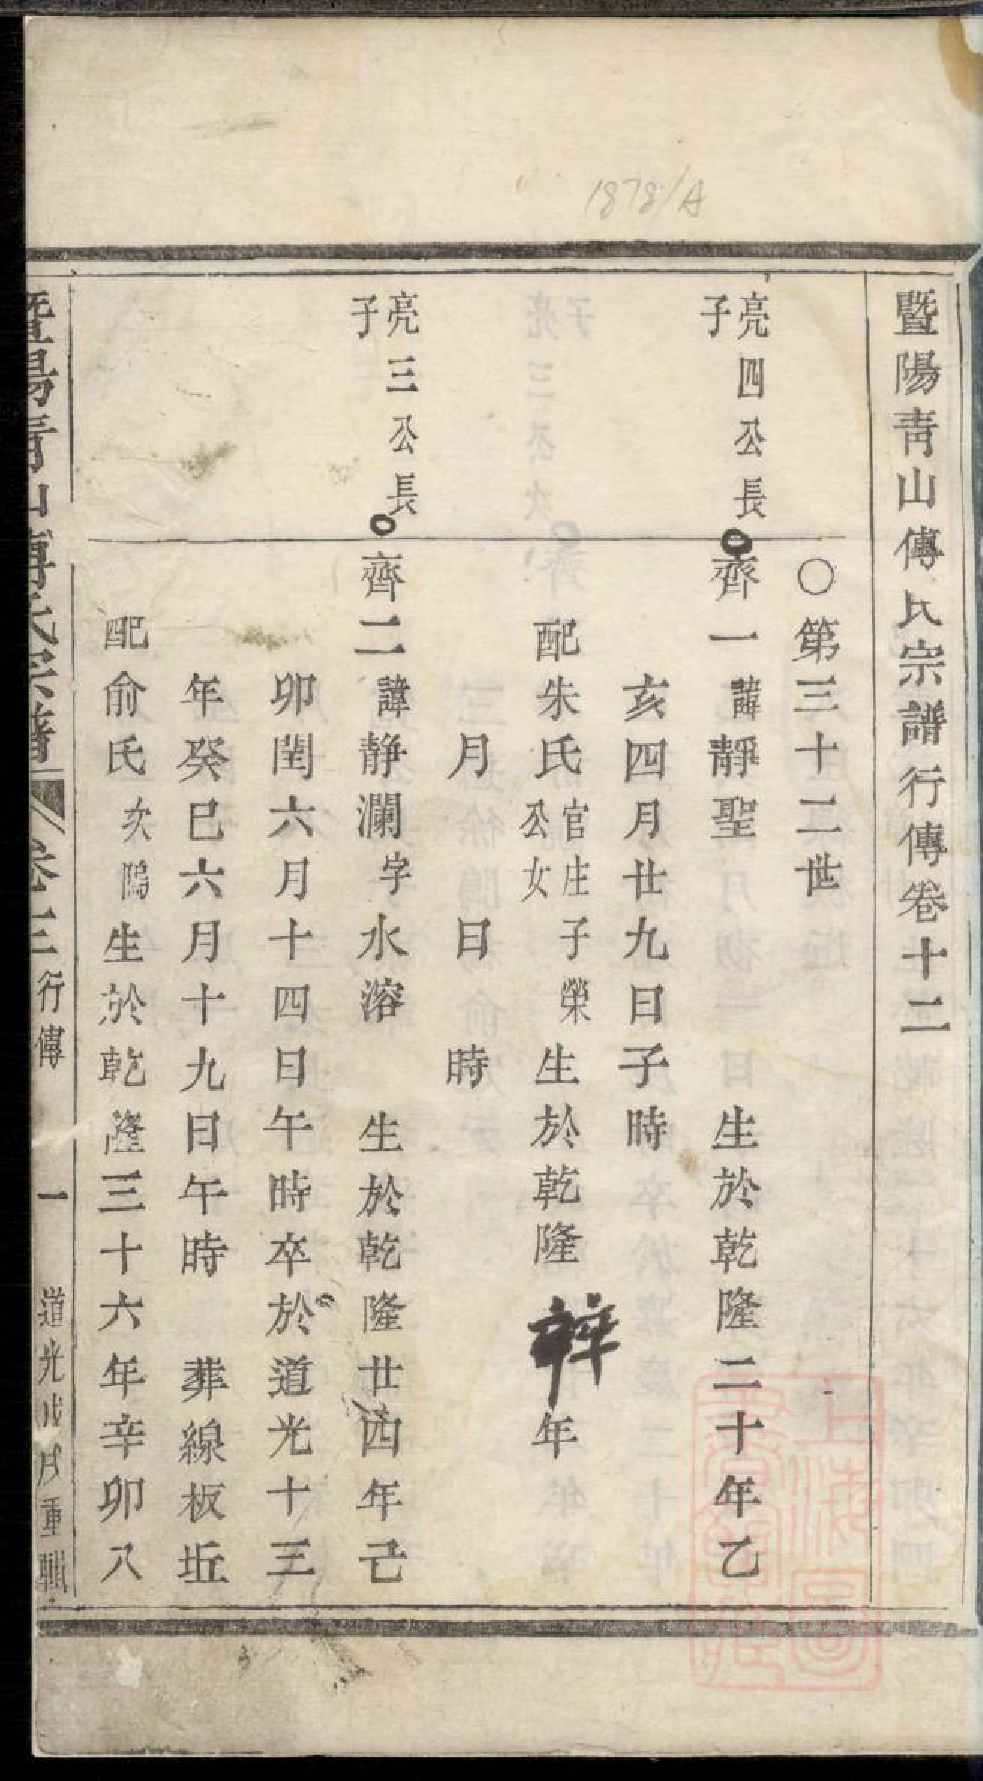 1878/A
暨陽靑山傅氏宗譜行傳卷十二
○第三十二世
亮四公長
子
齊一諱靜聖 生於乾隆二十年乙
亥四月廿九日子時
配朱氏官庄公女子榮生於乾隆 年
月 日 時
亮三公長
子
齊二諱静瀾字水溶 生於乾隆廿四年己
卯閏六月十四日午時卒於道光十三
年癸巳六月十九日午時 葬線板坵
配俞氏次塢生於乾隆三十六年辛卯八
暨陽青山傅氏宗譜
行傳
一
道光戊戌重輯
上海圖書館藏